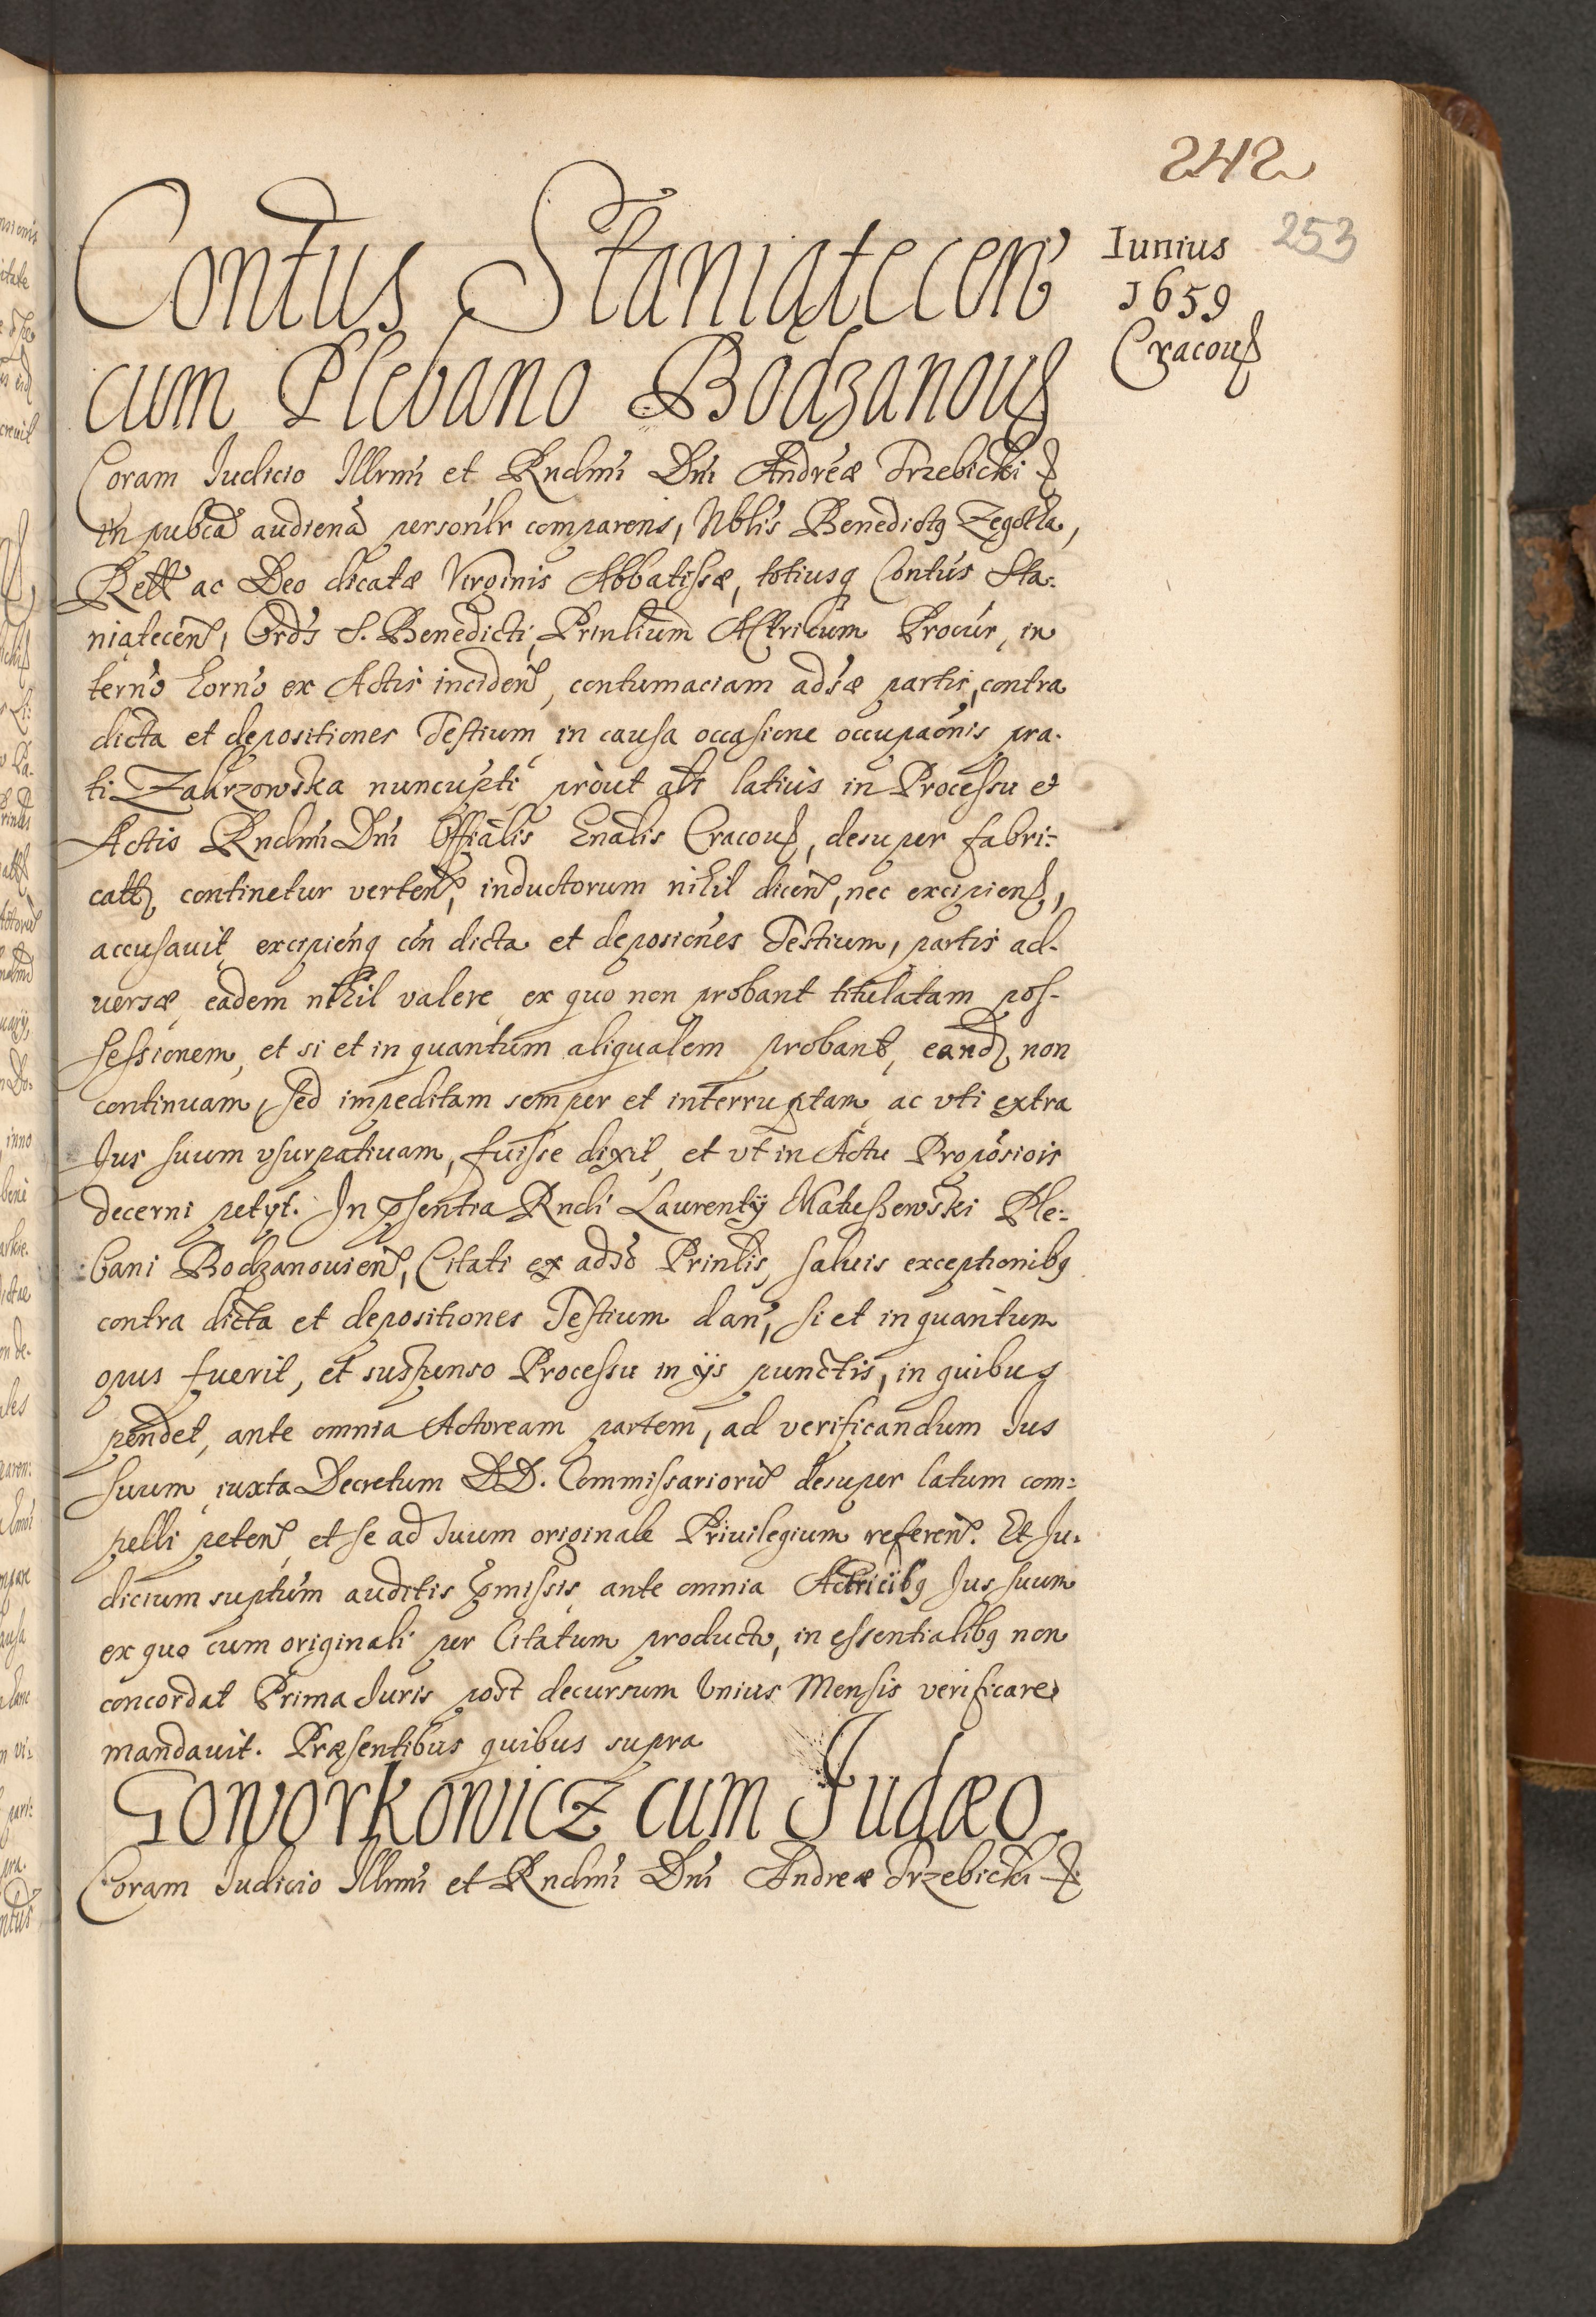 242
253
Iunius
1659
Cracouß
Contus Staniątecen
cum Plebano Bodzanouß
Coram Iudicio Illrmi et Rndmi Dni Andreæ Trzebicki
in pubca audiena personlr comparens, Nblis Benedictq Zegotta,
Rell ac Deo dicatæ Virginis Abbatissæ, totiusq Contus Sta-
niątecen, Ords S. Benedicti, Printium Actricum Procur, in
termo horno ex Actis inciden, contumaciam adsæ partis, contra
dicta et depositiones Testium in causa occasione occupaonis pra-
ti Zaurzowska nuncupti prout alt latius in Processu et
Actis Rndmi Dni Offialis Gnalis Cracouß, desuper fabri-
catt continetur verten, inductorum nihil dicen, nec excipien,
accusavit, excipienq con dicta et deposiones Testium, partis ad-
uersæ eadem nihil valere ex quo non probant titulatam pos-
sessionem, et si et in quantum aliqualem probant, eand non
continuam, sed impeditam semper et interruptam ac vti extra
Ius suum vsurpatiuam, fuisse dixit, et vt in Actu Proposiois
decerni petyt. In psentia Rndi Laurentij Matuszewski Ple-
bani Bodzanouien, Citati ex adso Printis, saluis exceptionibq
contra dicta et depositiones Testium dan, si et in quantum
opus fuerit, et suspenso Processu in ijs punctis, in quibus
pendet, ante omnia Actoream partem, ad verificandum Ius
suum iuxta Decretum DD. Commissarioru desuper latum com-
pelli peten et se ad suum originale Priuilegium referen. Et Iu-
dicium suptum auditis pmissis ante omnia Actricibq Ius suum
ex quo cum originali per Citatum producto, in essentialibq non
concordat Prima Iuris post decursum Vnius Mensis verificare
mandauit. Præsentibus quibus supra
Goworkowicz cum Iudæo.
Coram Iudicio Illrmi et Rndmi Dni Andreæ Trzebicki